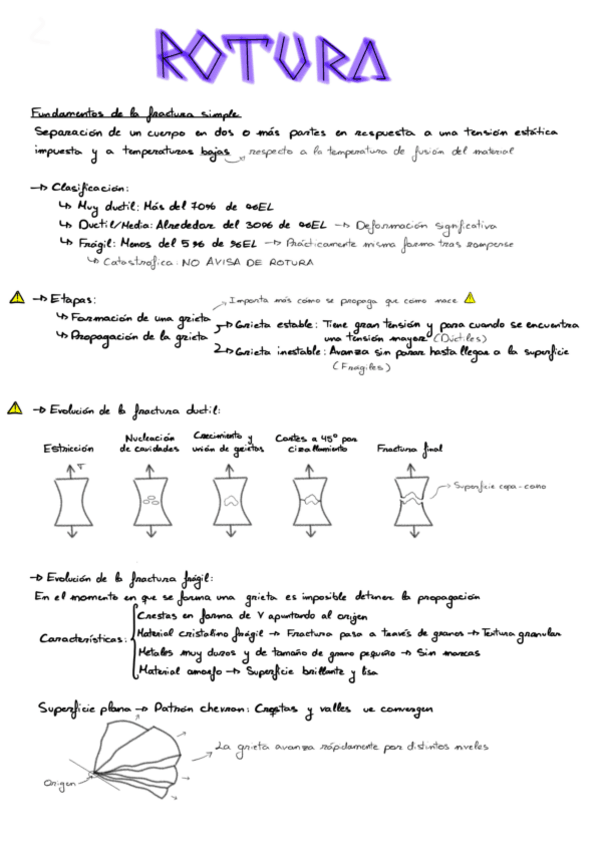 ROTURA
Fundamentos de la fractura simple
Separación de un cuerpo en dos o más partes en respuesta a una tensión estática
impuesta y a temperaturas bajas → respecto a la temperatura de fusión del material
→ Clasificación:
↳ Muy ductil: Más del 70% de %EL
↳ Ductil/Media: Alrededor del 30% de %EL → Deformación significativa
↳ Frágil: Menos del 5% de %EL → Prácticamente misma forma tras romperse
↳ Catastrófica: NO AVISA DE ROTURA
→ Etapas:
Importa más cómo se propaga que cómo nace
↳ Formación de una grieta
↳ Propagación de la grieta
→ Grieta estable: Tiene gran tensión y para cuando se encuentra
una tensión mayor (Dúctiles)
→ Grieta inestable: Avanza sin parar hasta llegar a la superficie
(Fragiles)
→ Evolución de la fractura ductil:
Estricción
Nucleación
de cavidades
Crecimiento y
unión de grietas
Cortes a 45º por
cizallamiento
Fractura final
Superficie copa-cono
→ Evolución de la fractura frágil:
En el momento en que se forma una grieta es imposible detener la propagación
Características:
Crestas en forma de V apuntando al origen
Material cristalino frágil → Fractura pasa a traves de granos → Textura granular
Metales muy duros y de tamaño de grano pequeño → Sin marcas
Material amorfo → Superficie brillante y lisa
Superficie plana → Patrón chevron: Crestas y valles que convergen
La grieta avanza rápidamente por distintos niveles
Origen